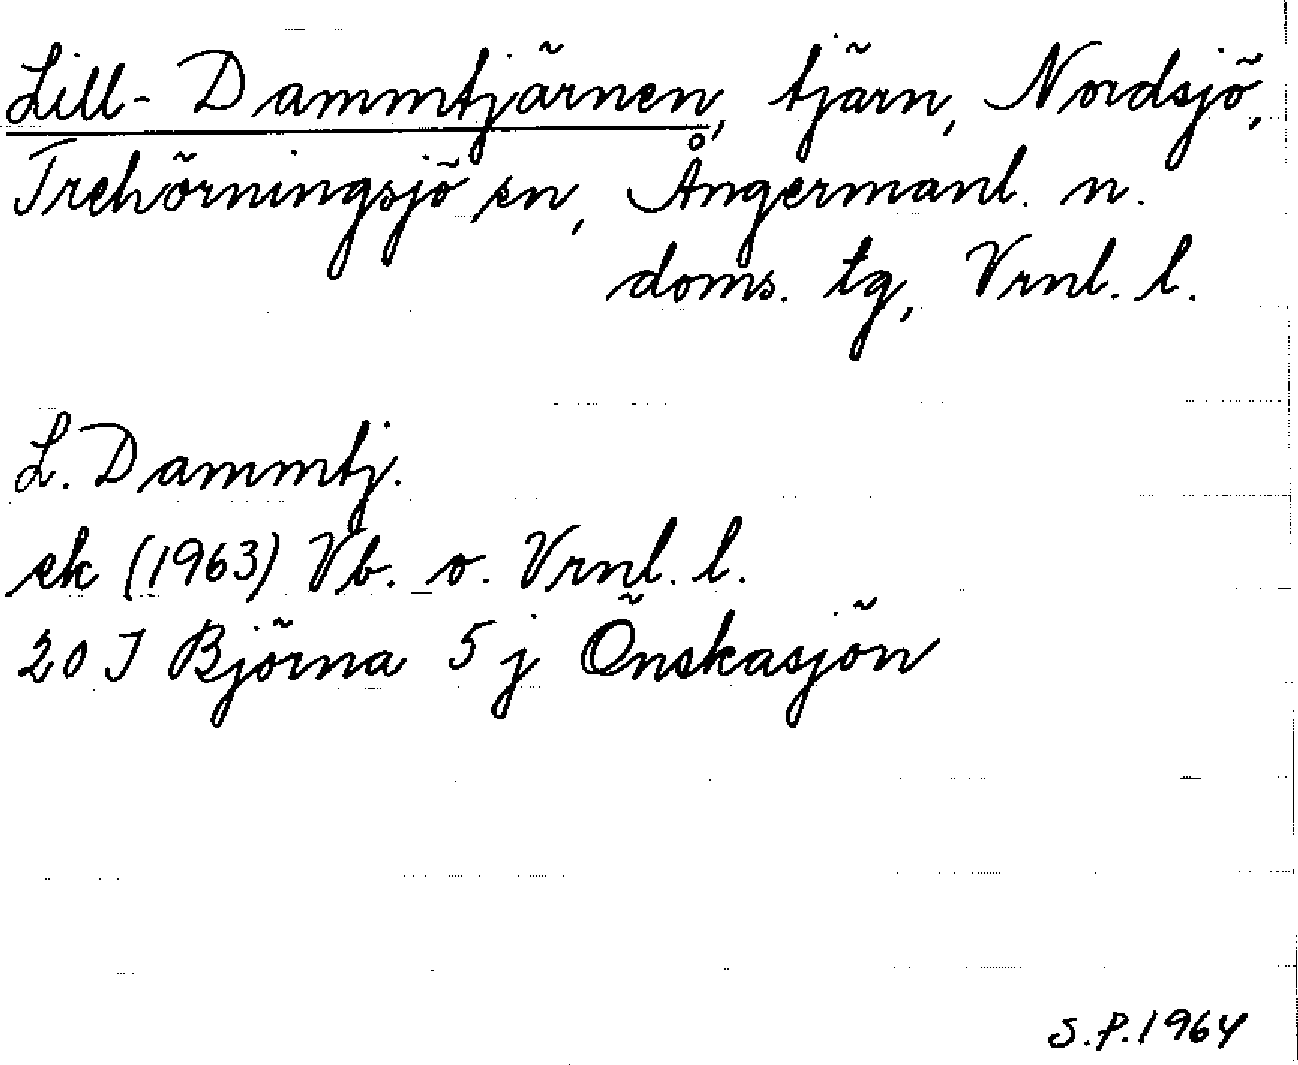 Lill-Dammtjärnen, tjärn, Nordsjö,
Trehörningsjö sn, Ångermanl. n.
doms. tg, Vrnl. l.
L. Dammtj.
ek (1963) Vb. o. Vrnl. l.
20 I Björna 5 j Önskasjön
S.P. 1964